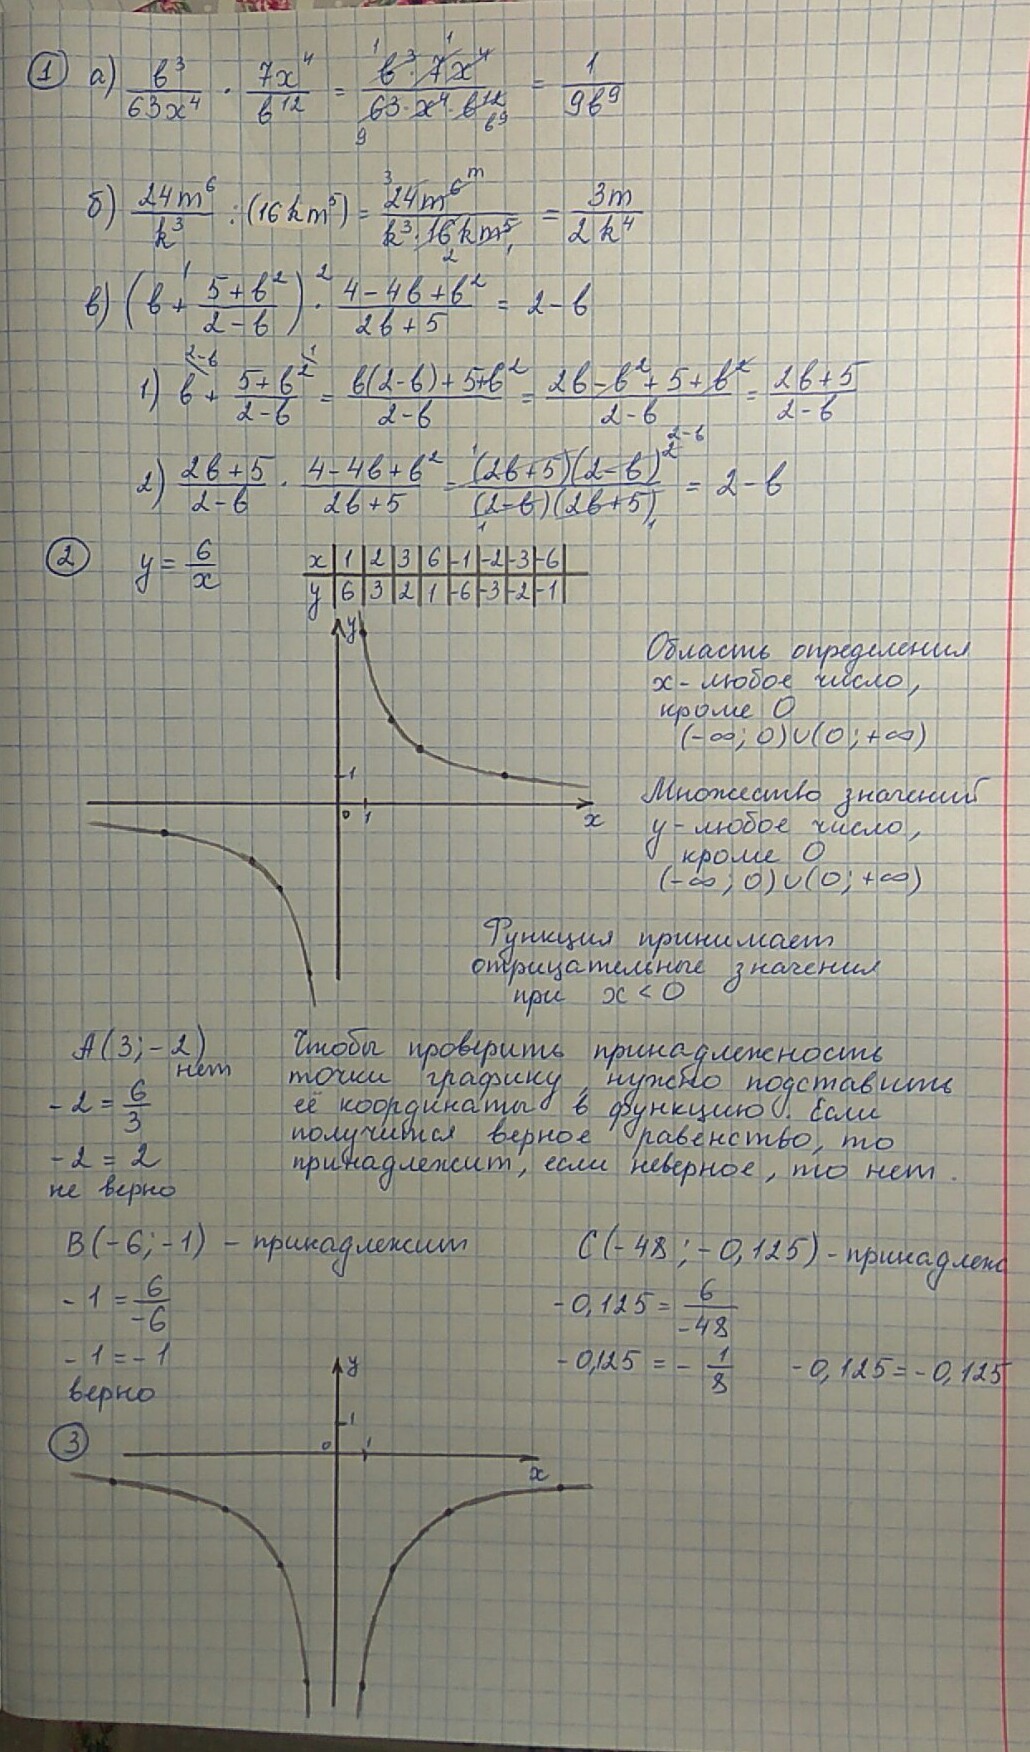 1 а) в³/63x⁴ · 7x⁴/в¹² = в³·7x⁴/63·x⁴·в¹² = 1/9в⁹
б) 24m⁶/k³ : (16km⁵) = 24m⁶/k³·16km⁵ = 3m/2k⁴
в) (в + 5+в²/2-в) · 4-4в+в²/2в+5 = 2-в
1) в + 5+в²/2-в = в(2-в)+5+в²/2-в = 2в-в²+5+в²/2-в = 2в+5/2-в
2) 2в+5/2-в · 4-4в+в²/2в+5 = (2в+5)(2-в)²/(2-в)(2в+5) = 2-в
2 y = 6/x
x 1 2 3 6 -1 -2 -3 -6
y 6 3 2 1 -6 -3 -2 -1
y
Область определения
x - любое число,
кроме 0
(-∞; 0)∪(0; +∞)
1
0 1 x
Множество значений
y - любое число,
кроме 0
(-∞; 0)∪(0; +∞)
Функция принимает
отрицательные значения
при x < 0
A(3; -2)
нет
-2 = 6/3
-2 = 2
не верно
Чтобы проверить принадлежность
точки графику, нужно подставить
её координаты в функцию. Если
получится верное равенство, то
принадлежит, если неверное, то нет.
B(-6; -1) - принадлежит
-1 = 6/-6
-1 = -1
верно
C(-48; -0,125) - принадлеж
-0,125 = 6/-48
-0,125 = - 1/8 -0,125 = -0,125
3
y
1
0 1
x